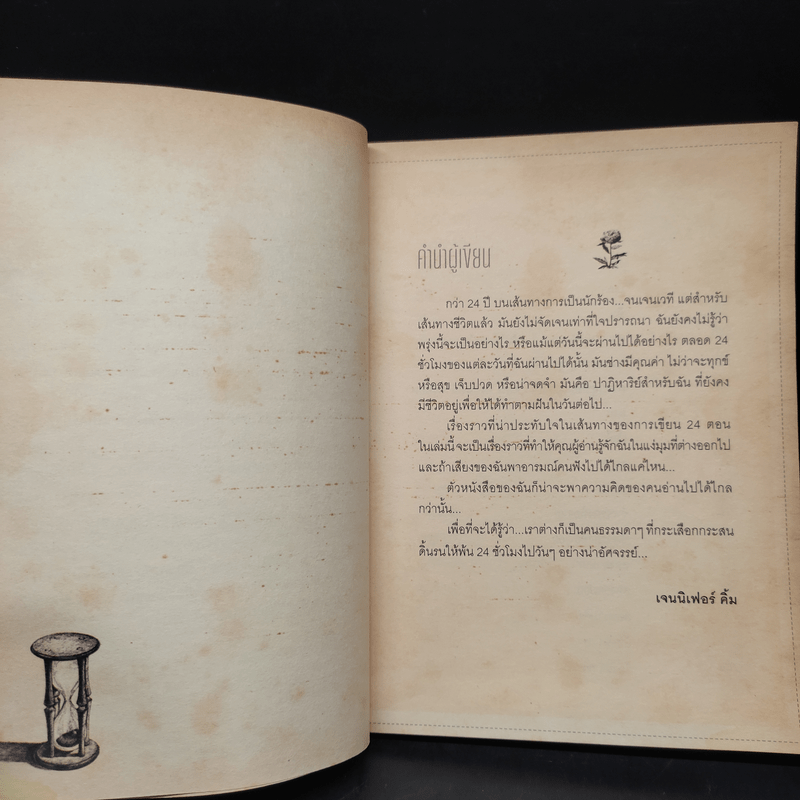 คำนำผู้เขียน
กว่า 24 ปี บนเส้นทางการเป็นนักร้อง...จนเจนเวที แต่สำหรับ
เส้นทางชีวิตแล้ว มันยังไม่จัดเจนเท่าที่ใจปรารถนา ฉันยังคงไม่รู้ว่า
พรุ่งนี้จะเป็นอย่างไร หรือแม้แต่วันนี้จะผ่านไปได้อย่างไร ตลอด 24
ชั่วโมงของแต่ละวันที่ฉันผ่านไปได้นั้น มันช่างมีคุณค่า ไม่ว่าจะทุกข์
หรือสุข เจ็บปวด หรือน่าจดจำ มันคือ ปาฏิหาริย์สำหรับฉัน ที่ยังคง
มีชีวิตอยู่เพื่อให้ได้ทำตามฝันในวันต่อไป...
เรื่องราวที่น่าประทับใจในเส้นทางของการเขียน 24 ตอน
ในเล่มนี้ จะเป็นเรื่องราวที่ทำให้คุณผู้อ่านรู้จักฉันในแง่มุมที่ต่างออกไป
และถ้าเสียงของฉันพาอารมณ์คนฟังไปได้ไกลแค่ไหน...
ตัวหนังสือของฉันก็น่าจะพาความคิดของคนอ่านไปได้ไกล
กว่านั้น...
เพื่อที่จะได้รู้ว่า...เราต่างก็เป็นคนธรรมดาๆ ที่กระเสือกกระสน
ดิ้นรนให้พ้น 24 ชั่วโมงไปวันๆ อย่างน่าอัศจรรย์...
เจนนิเฟอร์ คิ้ม